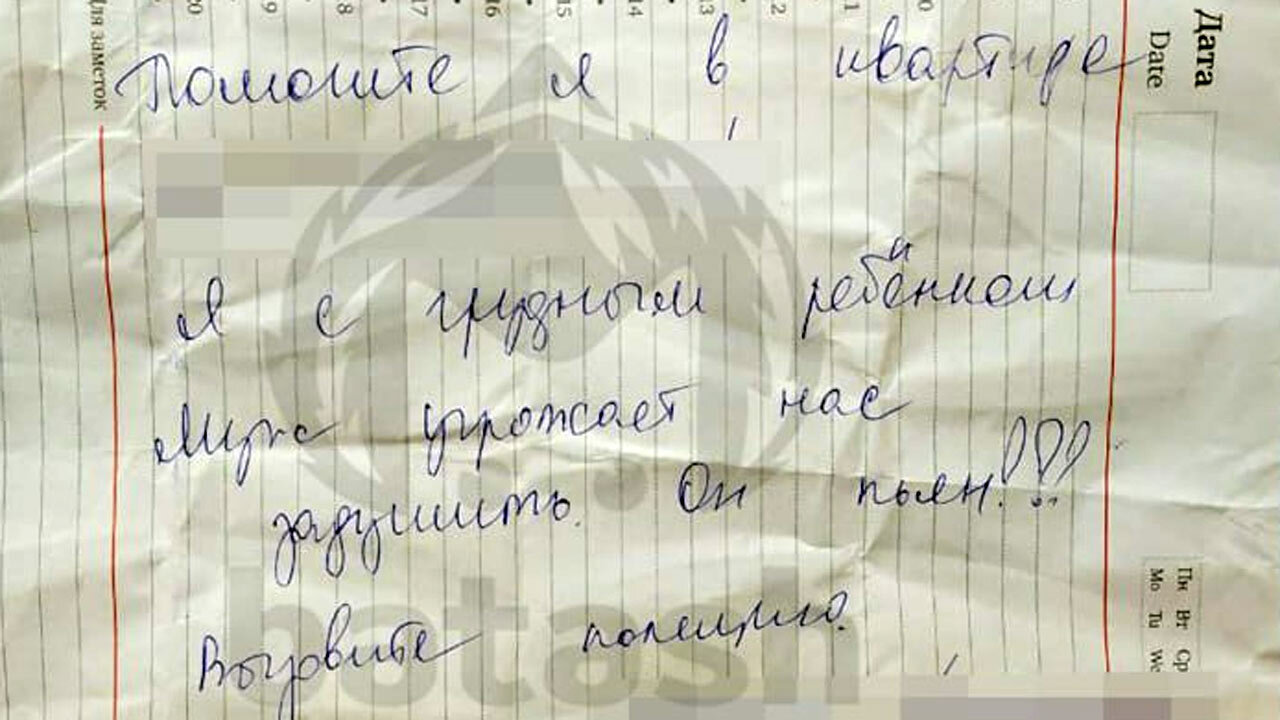 Помогите я в квартире
Я с грудным ребёнком
Муж угрожает нас
задушить. Он пьян!!!
Вызовите полицию.
Для заметок
20 19 18 17 16 15 14 13 12 11 10
Дата
Date
Пн Вт Ср
Mo Tu We
baza